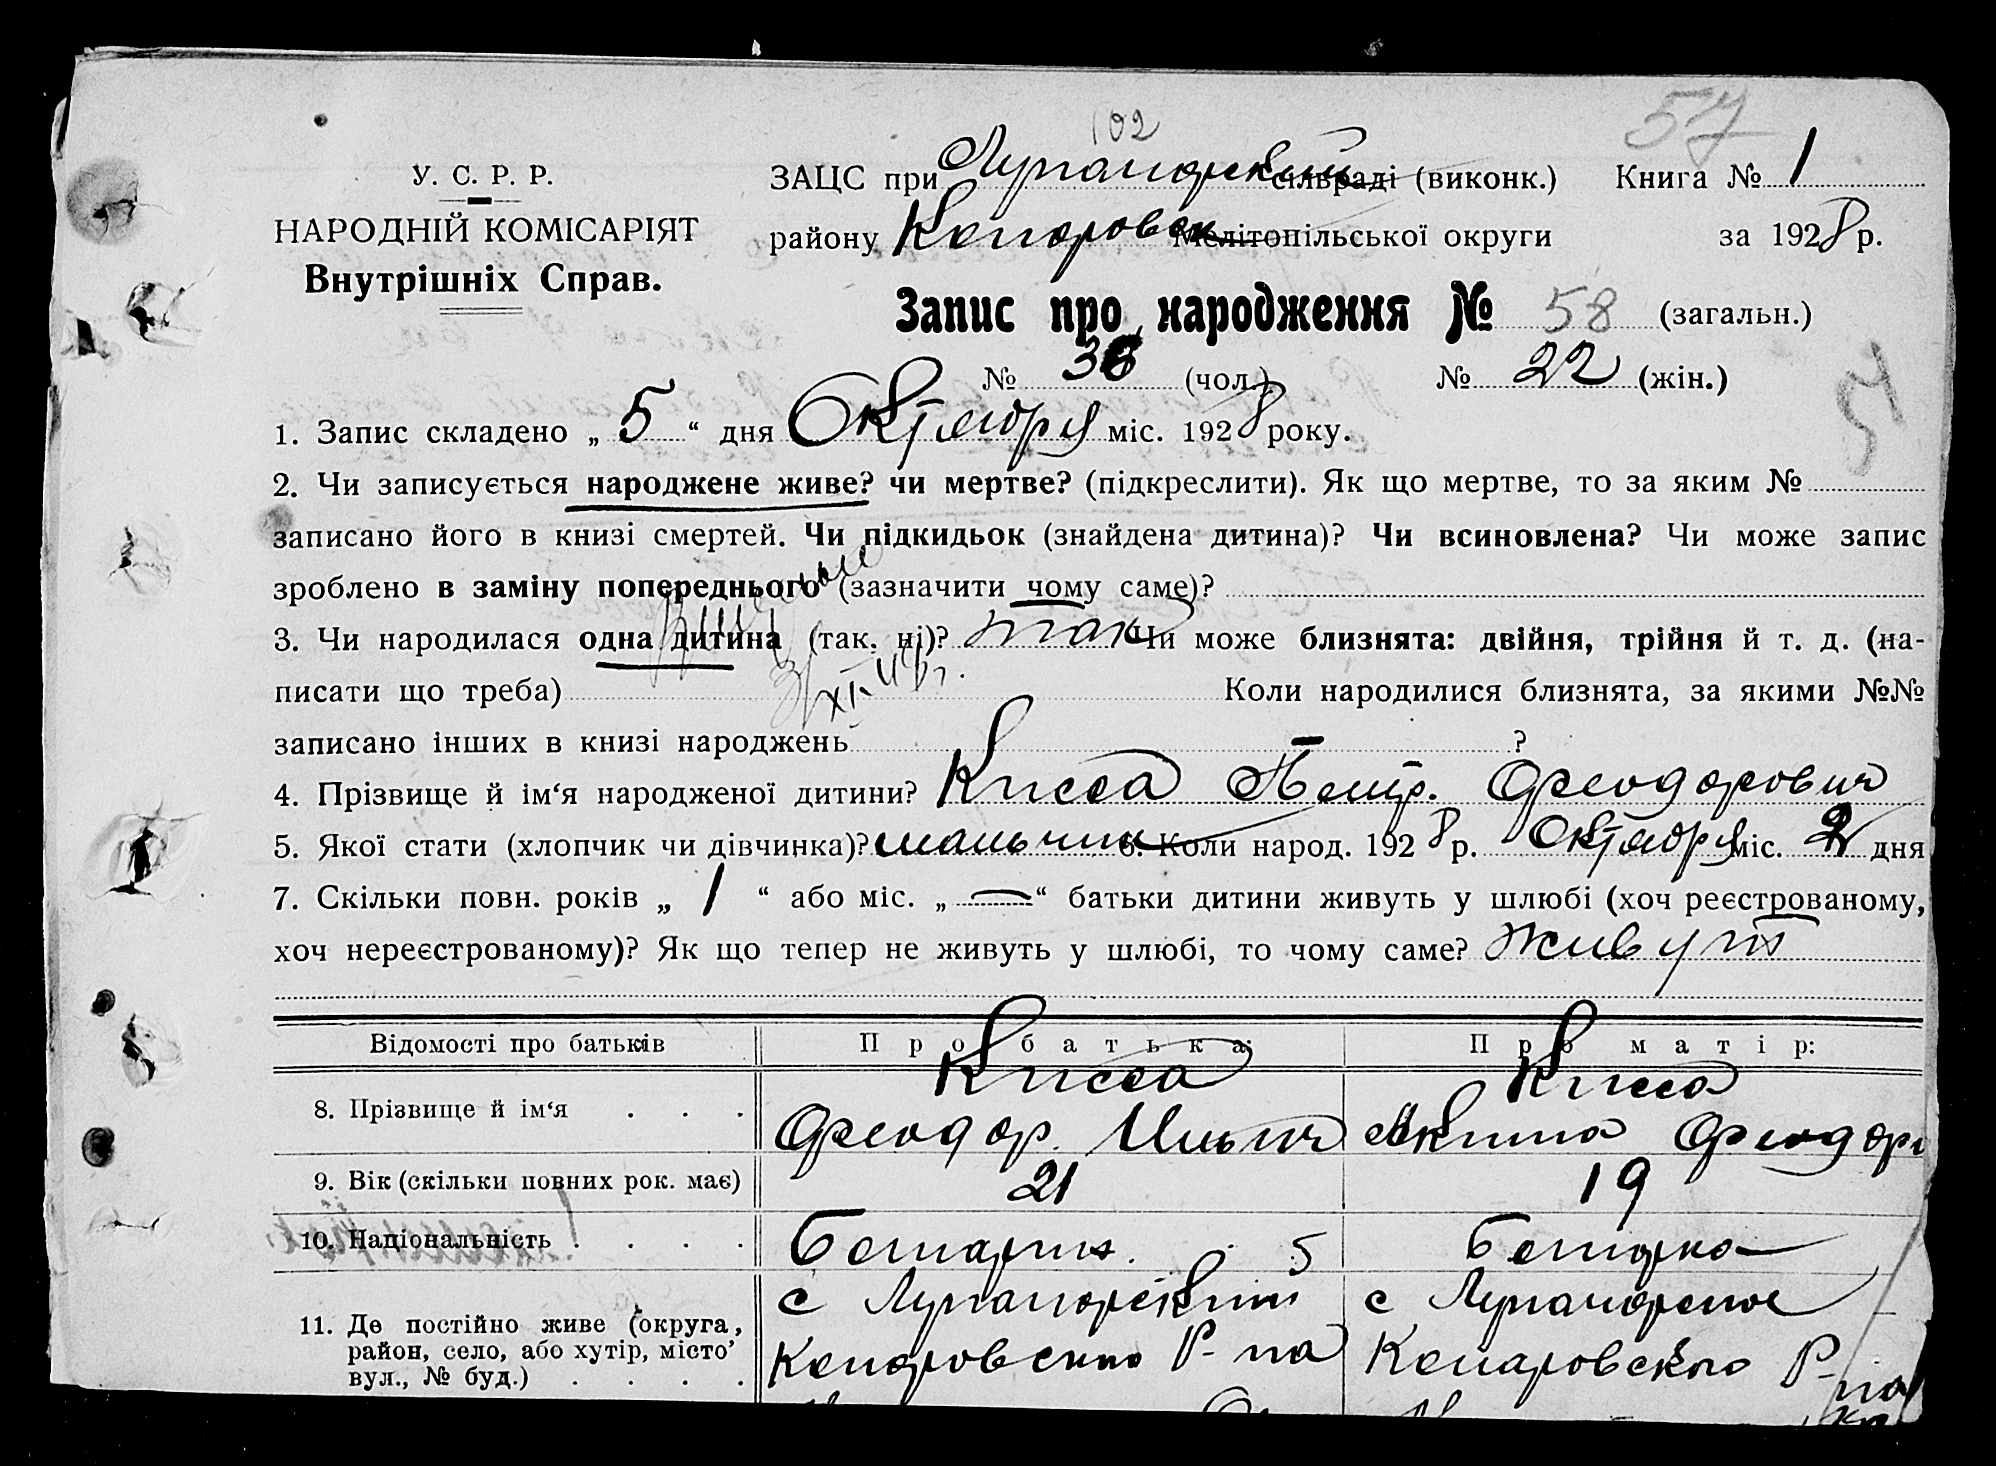 57
102
У. С. Р. Р.
НАРОДНІЙ КОМІСАРІЯТ
Внутрішніх Справ.
ЗАЦС при сільраді (виконк.) Книга № 1
району Мелітопільської округи за 1928 р.
Запис про народження № 58 (загальн.)
№ 36 (чол.) № 22 (жін.)
1. Запис складено „ 5 “ дня Октября міс. 1928 року.
2. Чи записується народжене живе? чи мертве? (підкреслити). Як що мертве, то за яким №
записано його в книзі смертей. Чи підкидьок (знайдена дитина)? Чи всиновлена? Чи може запис
зроблено в заміну попереднього (зазначити чому саме)?
3. Чи народилася одна дитина (так, ні)? так Чи може близнята: двійня, трійня й т. д. (на-
писати що треба) Коли народилися близнята, за якими №№
записано інших в книзі народжень ?
4. Прізвище й ім‘я народженої дитини? Кисса Петр. Феодорович
5. Якої стати (хлопчик чи дівчинка)? мальчик 6. Коли народ. 1928 р. Октября міс. 2 дня
7. Скільки повн. років „ 1 “ або міс. „ — “ батьки дитини живуть у шлюбі (хоч реєстрованому,
хоч нереєстрованому)? Як що тепер не живуть у шлюбі, то чому саме? живут
Відомості про батьків Про батька: Про матір:
8. Прізвище й ім‘я . . . Кисса Феодор. Ильич Кисса Феодор
9. Вік (скільки повних рок. має) 21 19
10. Національність . . . . Болгарин. 5 Болгарка
11. Де постійно живе (округа,
район, село, або хутір, місто’
вул., № буд.) . . . .
с с
Р-на Р-на